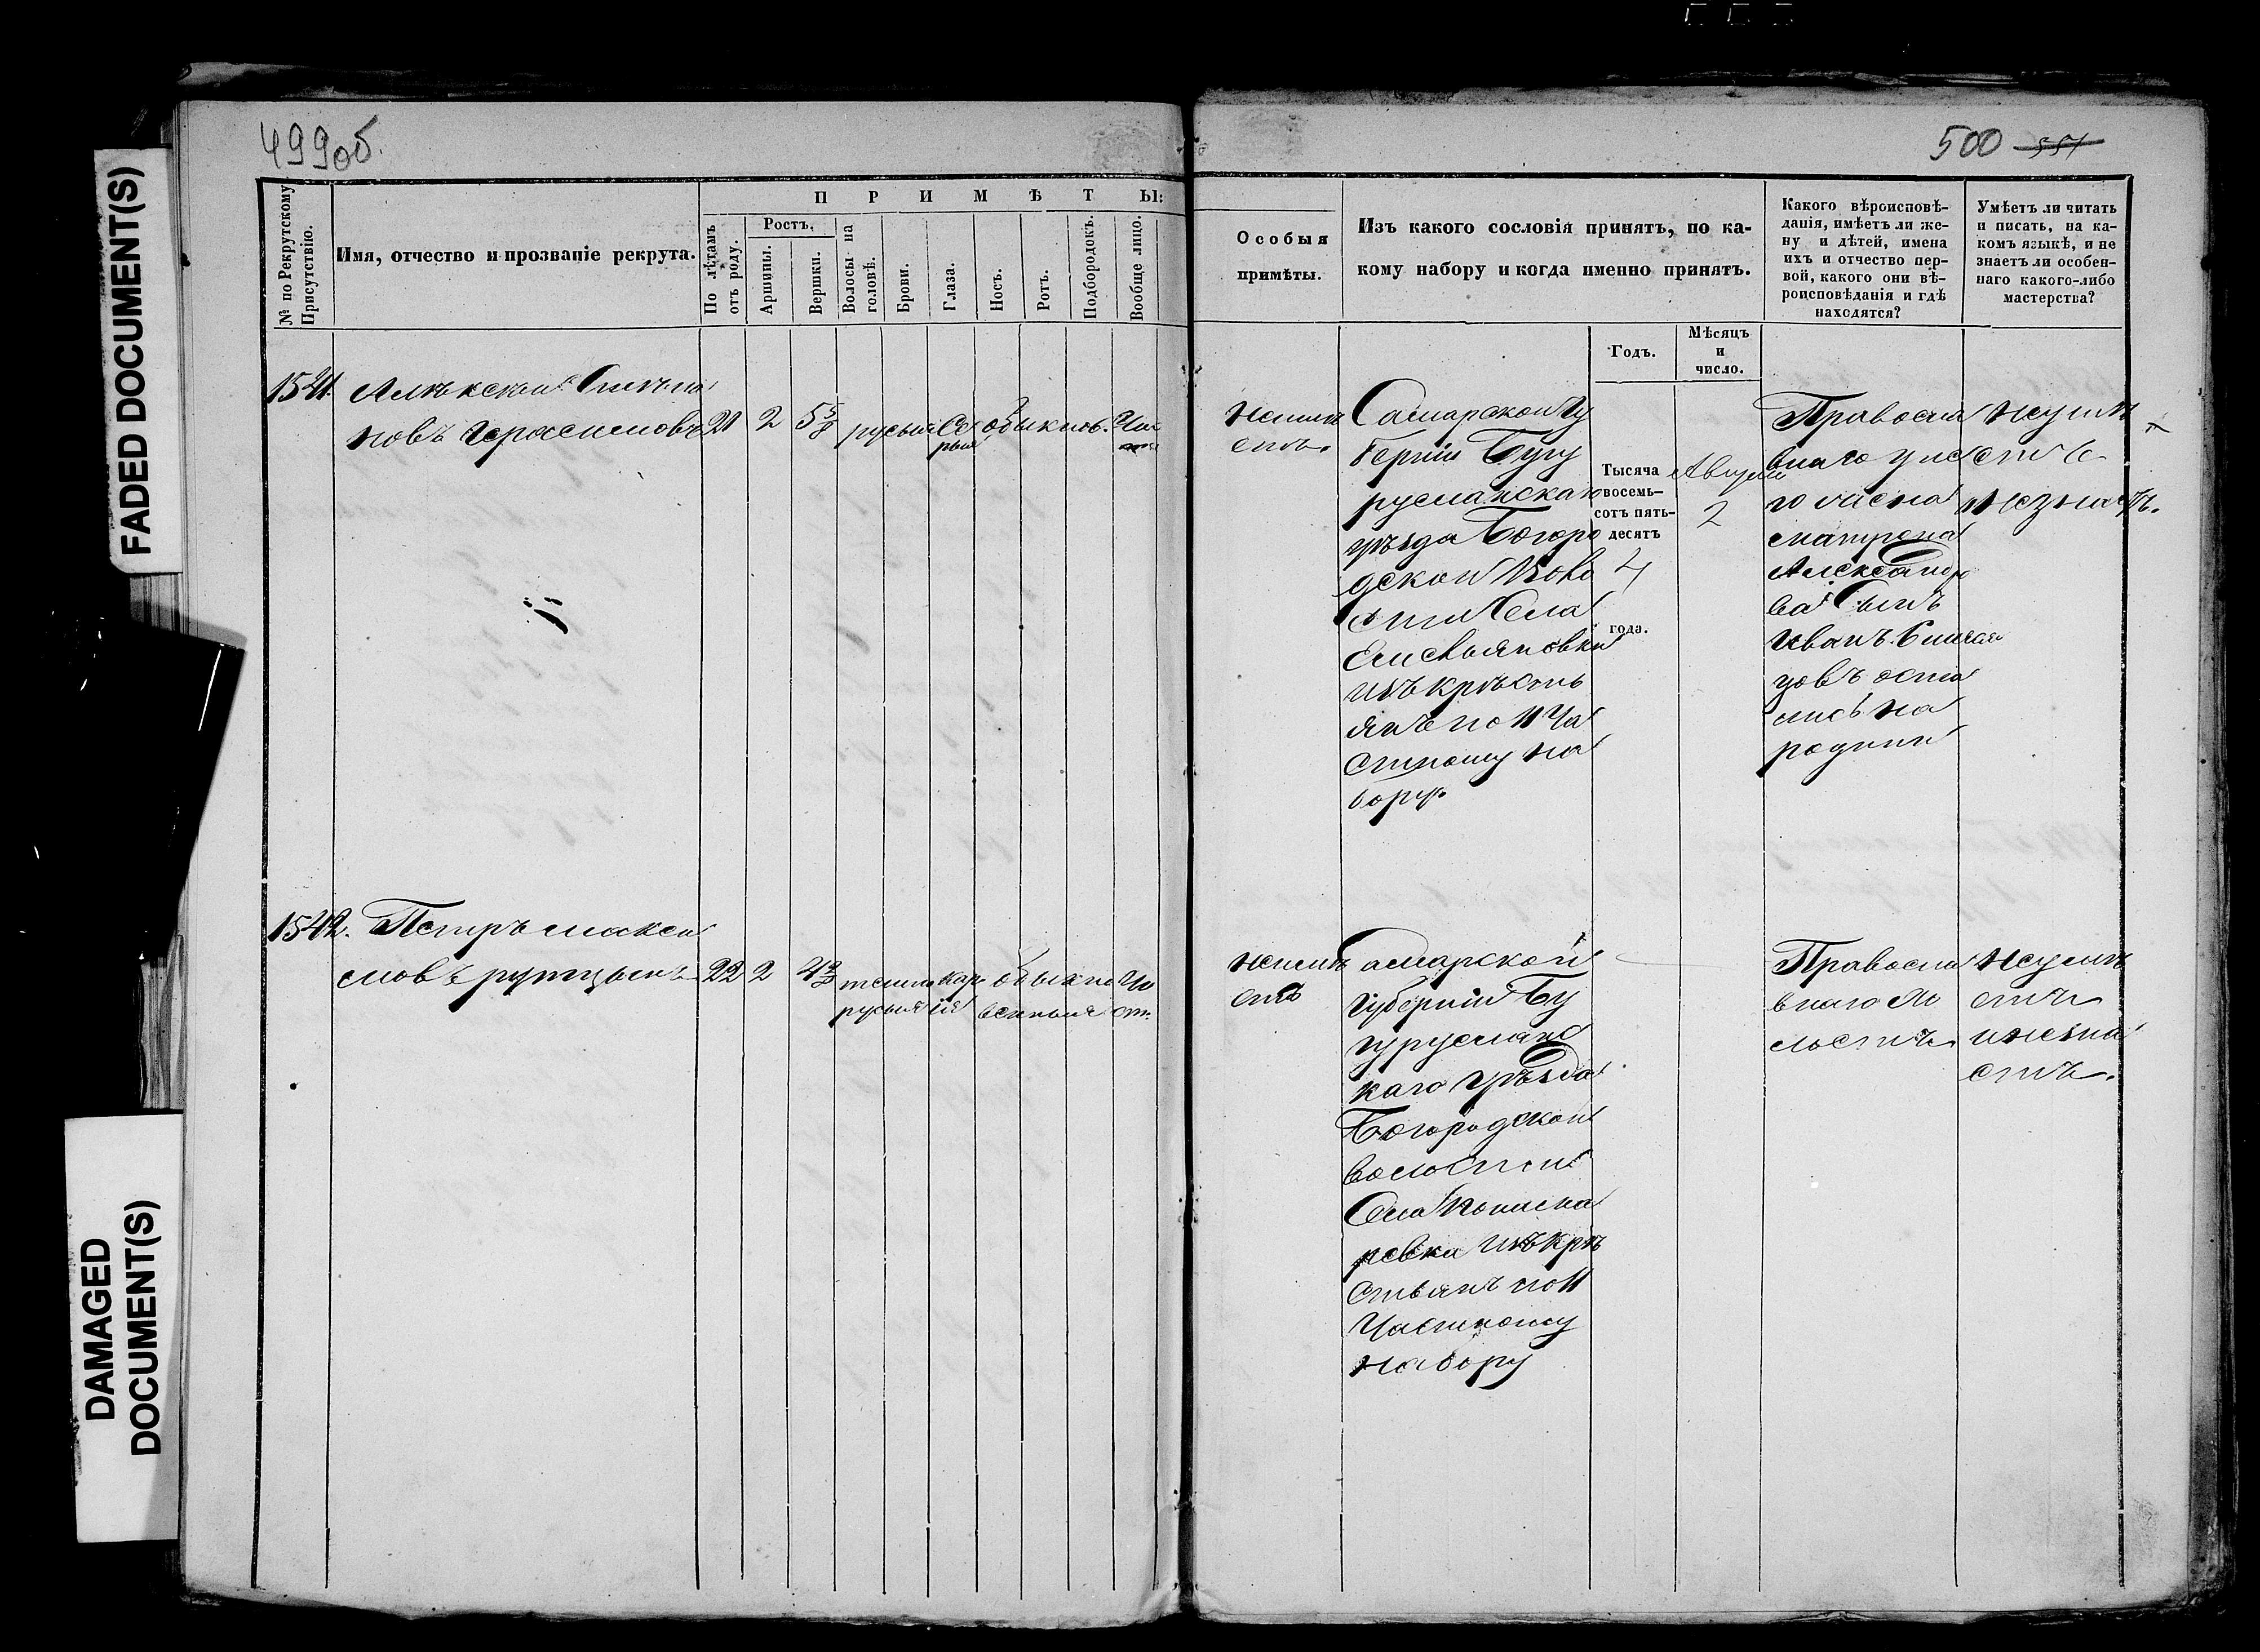 499об.
500 551
FADED DOCUMENT(S)
DAMAGED
DOCUMENT(S)
№ по Рекрутскому
Присутствію.
Имя, отчество и прозваніе рекрута.
ПРИМѢТЫ:
По лѣтамъ
отъ роду.
Ростъ,
Аршины.
Вершки.
Волосы на
головѣ.
Брови.
Глаза.
Носъ.
Ротъ.
Подбородокъ.
Вообще лицо.
Особыя
примѣты.
Изъ какого сословія принятъ, по ка-
кому набору и когда именно принятъ.
Годъ.
Мѣсяцъ
и
число.
Какого вѣроисповѣ-
данія, имѣетъ ли же-
ну и дѣтей, имена
ихъ и отчество пер-
вой, какого они вѣ-
роисповѣданія и гдѣ
находятся?
Умѣетъ ли читать
и писать, на ка-
комъ языкѣ, и не
знаетъ ли особен-
наго какого-либо
мастерства?
1541.
новъ Герасимовъ
21
2
5 5/8
русыя
Сѣ
рыя
обыкнов.
Чис
неимѣ
етъ.
Самарской Гу
берніи Бугу
русланскаго
уѣзда Богоро
дской Воло
сти Села
изъ крѣсть
янъ по 11 Ча
стному на
бору.
Тысяча
восемь-
сотъ пять-
десятъ
4
года.
Августа
2
Правосла
внаго у не
го жена
Александро
ва Сынъ
Иванъ
оста
лись на
родинѣ
неумѣ
етъ
незнаетъ.
1542.
Петръ Макси
мовъ
22
2
4
темно
русыя
кар
ія
обыкно
венныя
чи
ст.
неимѣ
етъ
Самарской
Губерніи Бу
гурусланс
каго Уѣзда
Богородской
волости
Села
изъ крѣ
стьянъ по 11
Частному
набору
Правосла
внаго Хо
лостъ
неумѣ
етъ
и незна
етъ.